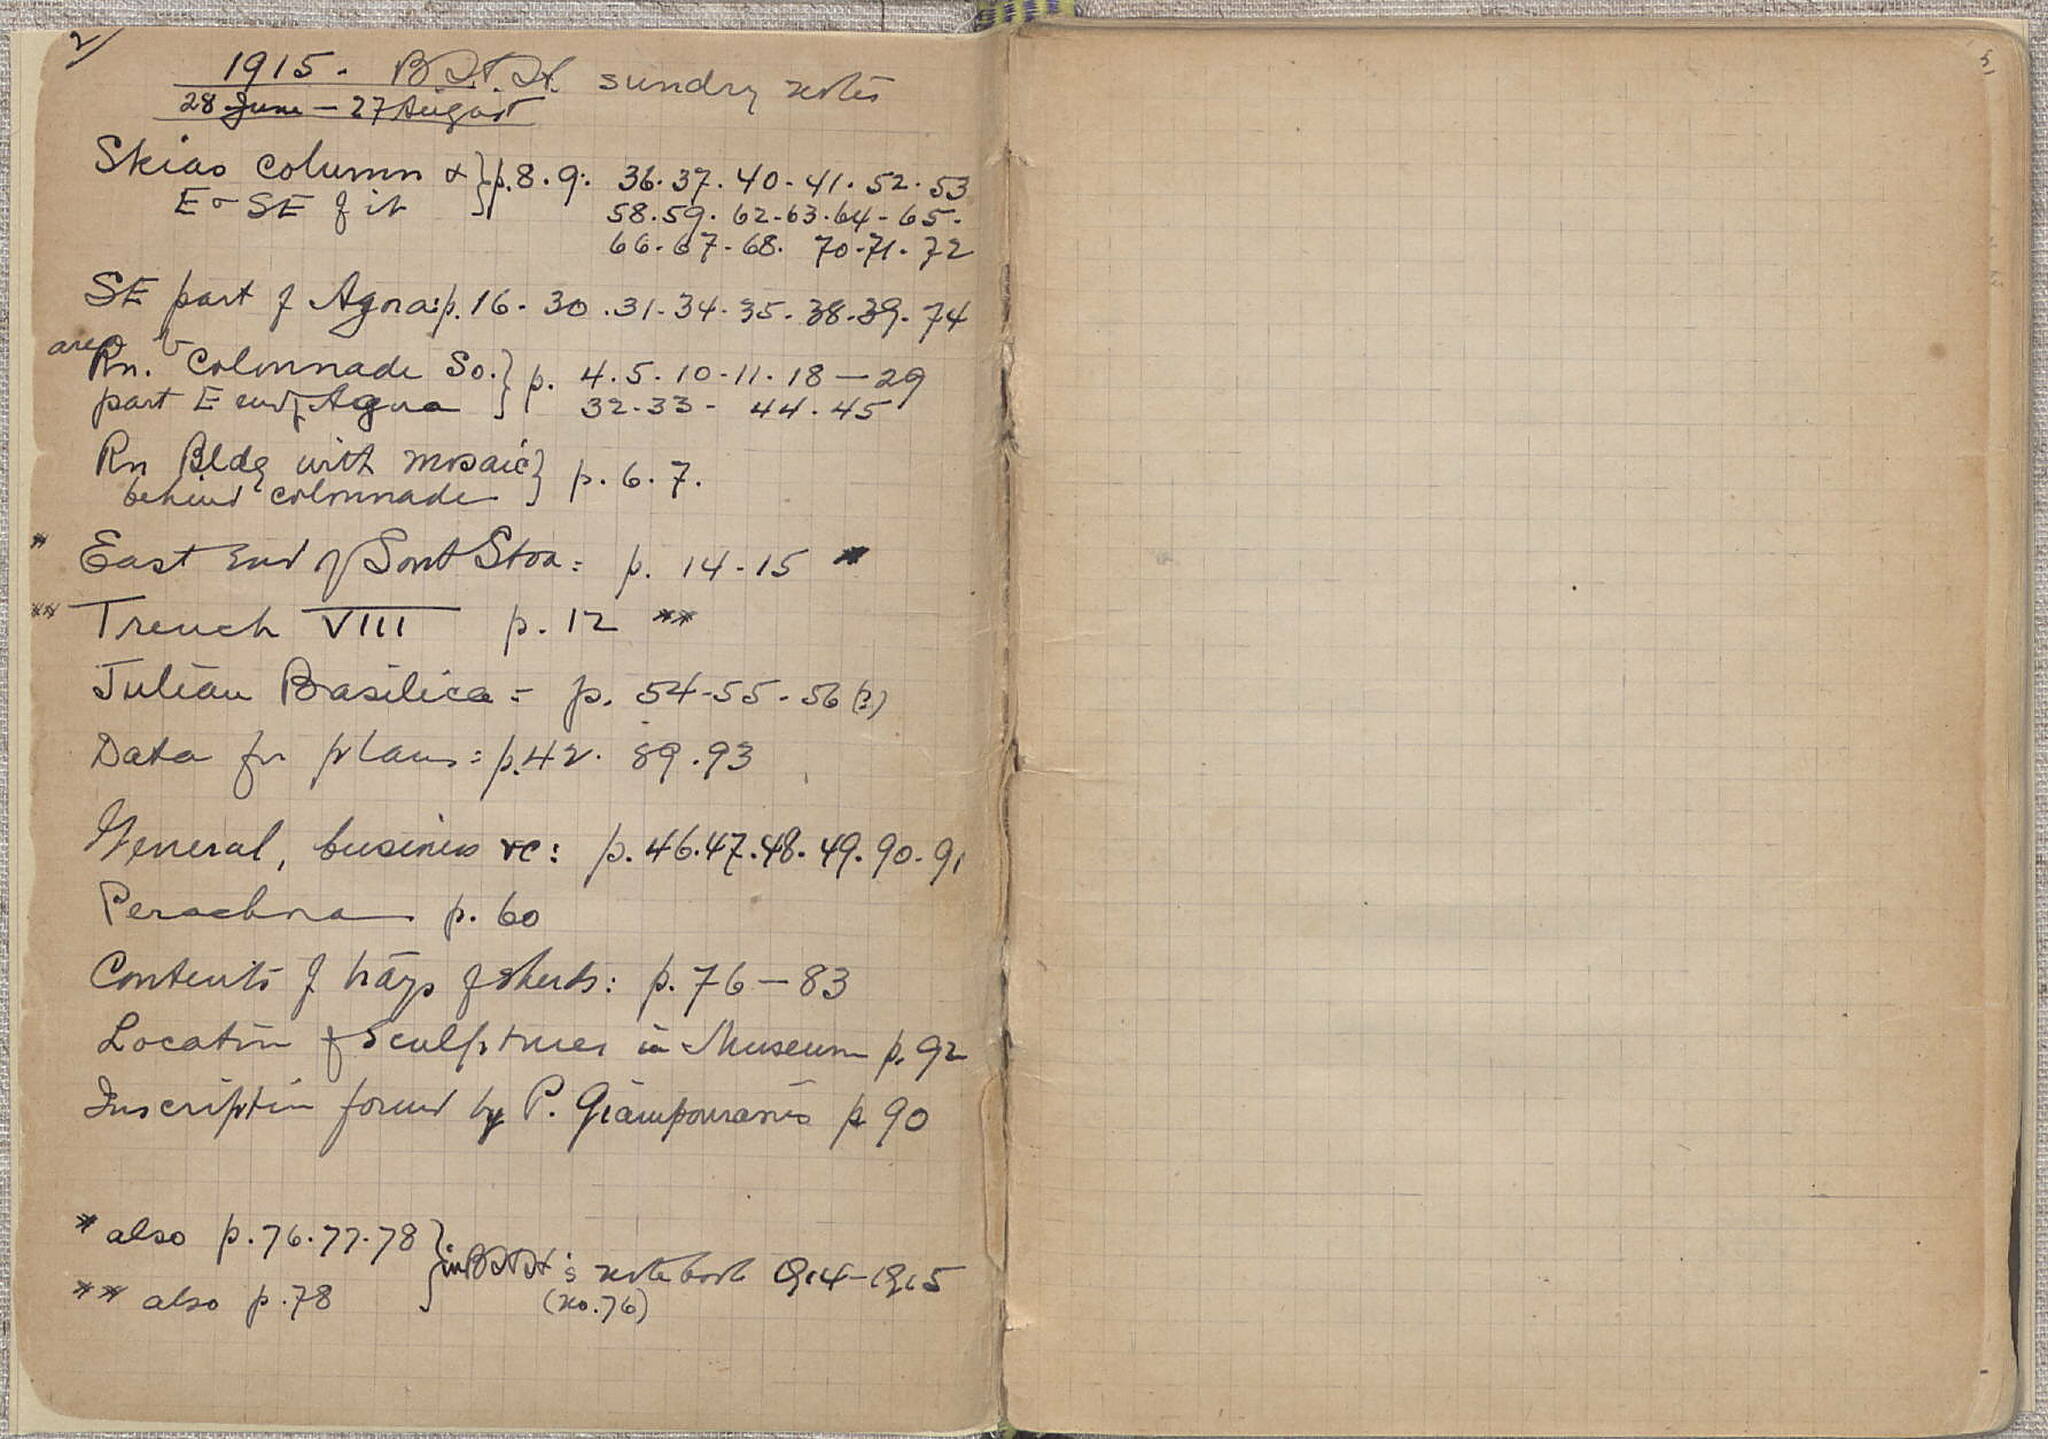 2/
1915. B.H.H. sundry notes
28 June — 27 August
Skias column & } p. 8. 9: 36. 37. 40. 41. 52. 53
E & SE of it 58. 59. 62. 63. 64. 65.
66. 67. 68. 70. 71. 72
SE part of Agora: p. 16. 30. 31. 34. 35. 38. 39. 74
area b
Rn. Colonnade So. } p. 4. 5. 10. 11. 18 — 29
part E end of Agora 32. 33. 44. 45
Rn Bldg with mosaic } p. 6. 7.
behind colonnade
* East End of South Stoa: p. 14-15 *
** Trench VIII p. 12 **
Julian Basilica = p. 54-55-56 (?)
Data for plans: p. 42. 89. 93
General, business &c: p. 46. 47. 48. 49. 90. 91
Perachora p. 60
Contents of trays of sherds: p. 76 — 83
Location of Sculptures in Museum p. 92
Inscription found by P. Giampouranis p 90
* also p. 76. 77. 78 } in BHH's notebook 1914-1915
** also p. 78 (no. 76)